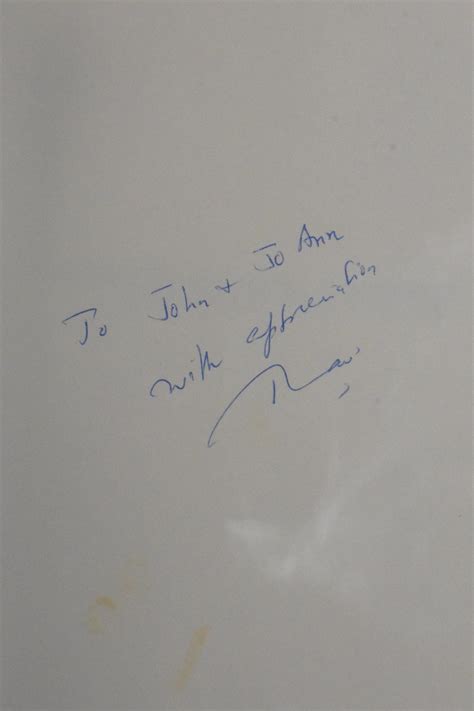 To John + Jo Ann
with appreciation